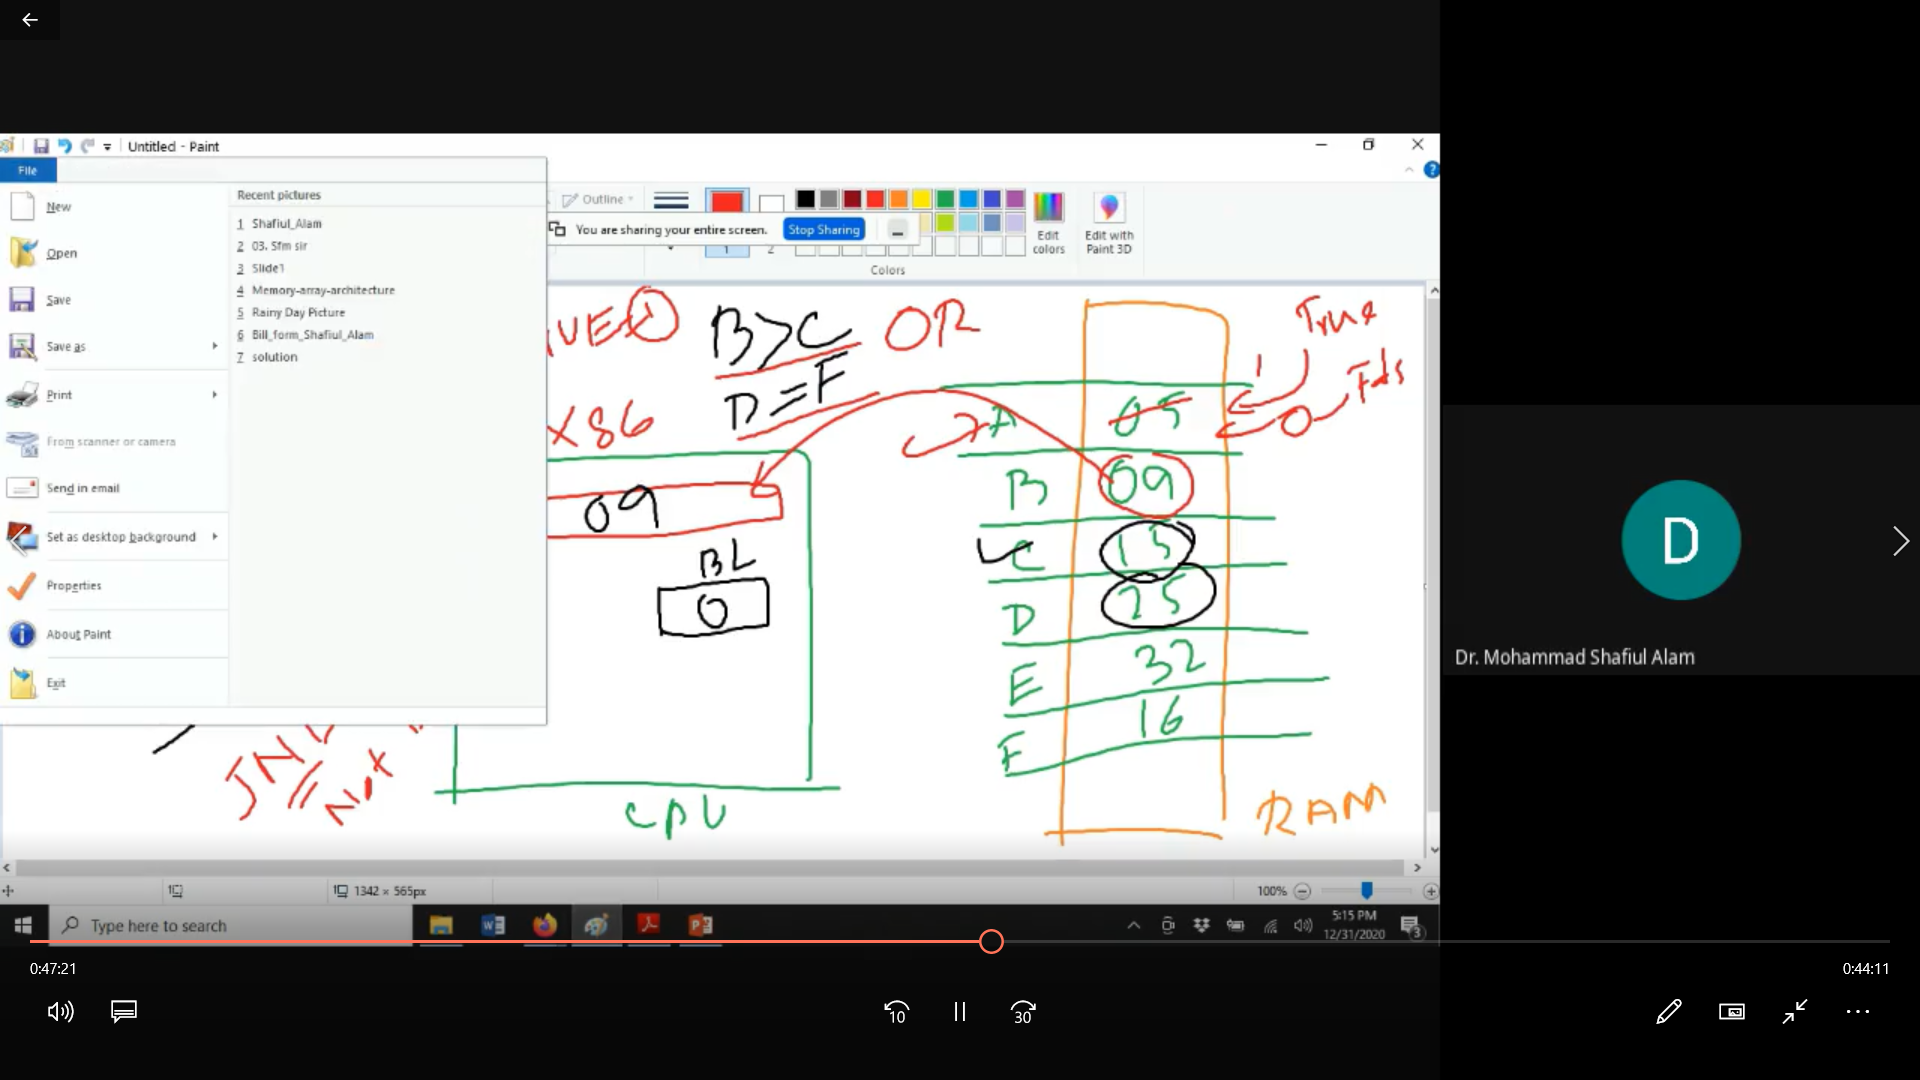 Untitled - Paint
File
New
Open
Save
Save as
Print
From scanner or camera
Send in email
Set as desktop background
Properties
About Paint
Exit
Recent pictures
1 Shafiul_Alam
2 03. Sfm sir
3 Slide1
4 Memory-array-architecture
5 Rainy Day Picture
6 Bill_form_Shafiul_Alam
7 solution
Outline
You are sharing your entire screen.
Stop Sharing
1
2
Edit colors
Edit with Paint 3D
Colors
B>C OR
D=F
X86
09
BL
0
CPU
JN
Not
True
1
0
A 05
B 09
C 15
D 25
E 32
F 16
RAM
1342 × 565px
100%
Type here to search
5:15 PM
12/31/2020
3
D
Dr. Mohammad Shafiul Alam
0:47:21
0:44:11
10
30